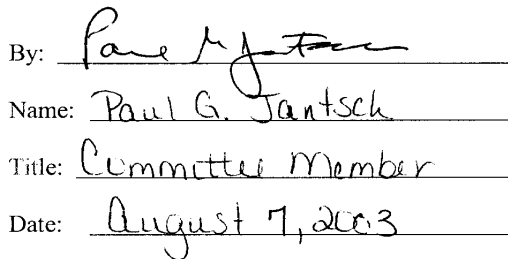 By:
Name: Paul G. Jantsch
Title: Committee Member
Date: August 7, 2003